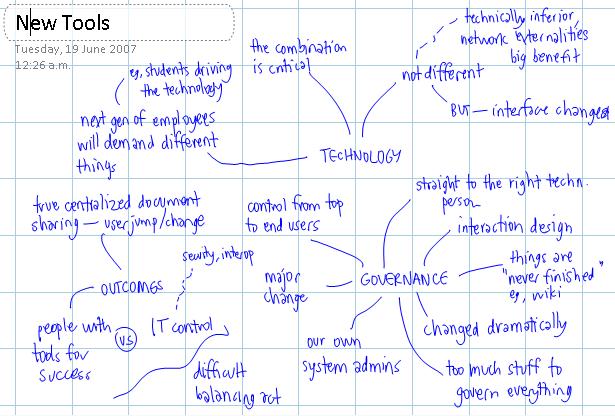 New Tools
Tuesday, 19 June 2007
12:26 a.m.
technically inferior,
network externalities
big benefit
the combination
is critical
not different
BUT — interface changed
eg, students driving
the technology
next gen of employees
will demand different
things
TECHNOLOGY
straight to the right techn.
person
true centralized document
sharing — user jump/change
control from top
to end users
interaction design
security, interop
things are
"never finished"
eg, wiki
major
change
GOVERNANCE
OUTCOMES
people with
tools for
success
vs
IT control
our own
system admins
changed dramatically
difficult
balancing act
too much stuff to
govern everything